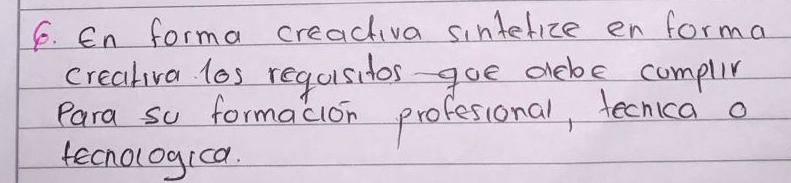 6. En forma creactiva sintetize en forma
creativa los requisitos que debe cumplir
Para su formación profesional, tecnica o
tecnologica.